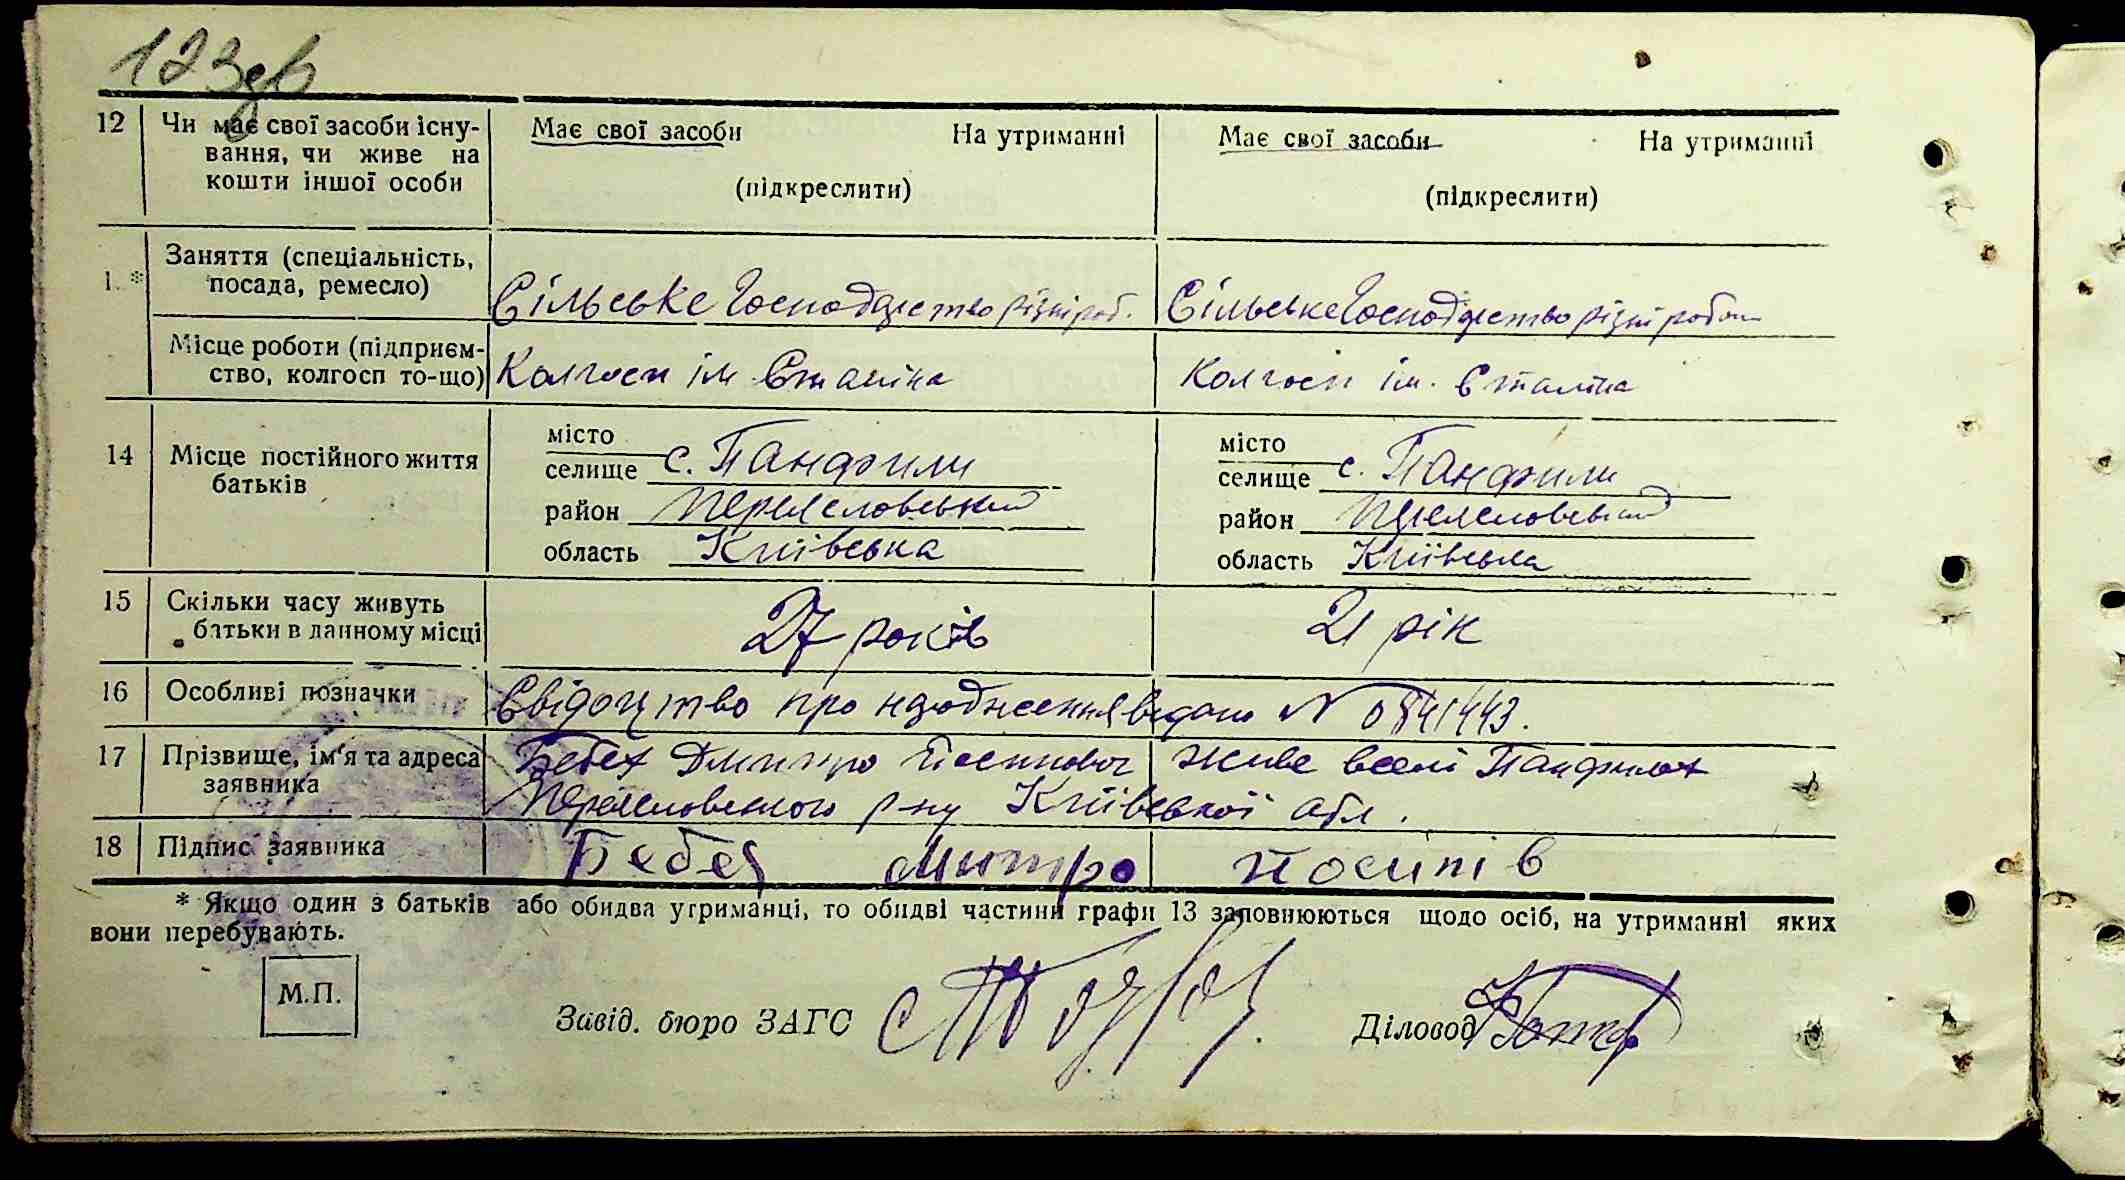 123зв
12 Чи має свої засоби існу- Має свої засоби На утриманні Має свої засоби На утриманні
вання, чи живе на
кошти іншої особи (підкреслити) (підкреслити)
1 * Заняття (спеціальність,
посада, ремесло) Сільське Господарство різні роб. Сільське Господарство різні роботи
Місце роботи (підприєм-
ство, колгосп то-що) Колгосп ім Сталіна Колгосп ім. Сталіна
місто місто
14 Місце постійного життя селище с. Панфили селище с. Панфили
батьків район Переяславський район Переяславський
область Київська область Київська
15 Скільки часу живуть
батьки в данному місці 27 років 21 рік
16 Особливі позначки Свідоцтво про народження видано N 0841443.
17 Прізвище, ім'я та адреса Бебех Дмитро Йосипович живе в селі Панфилах
заявника Переяславського р-ну Київської обл.
18 Підпис заявника Бебех Дмитро Йосипів
* Якщо один з батьків або обидва утриманці, то обидві частини графи 13 заповнюються щодо осіб, на утриманні яких
вони перебувають.
М.П.
Завід. бюро ЗАГС Діловод